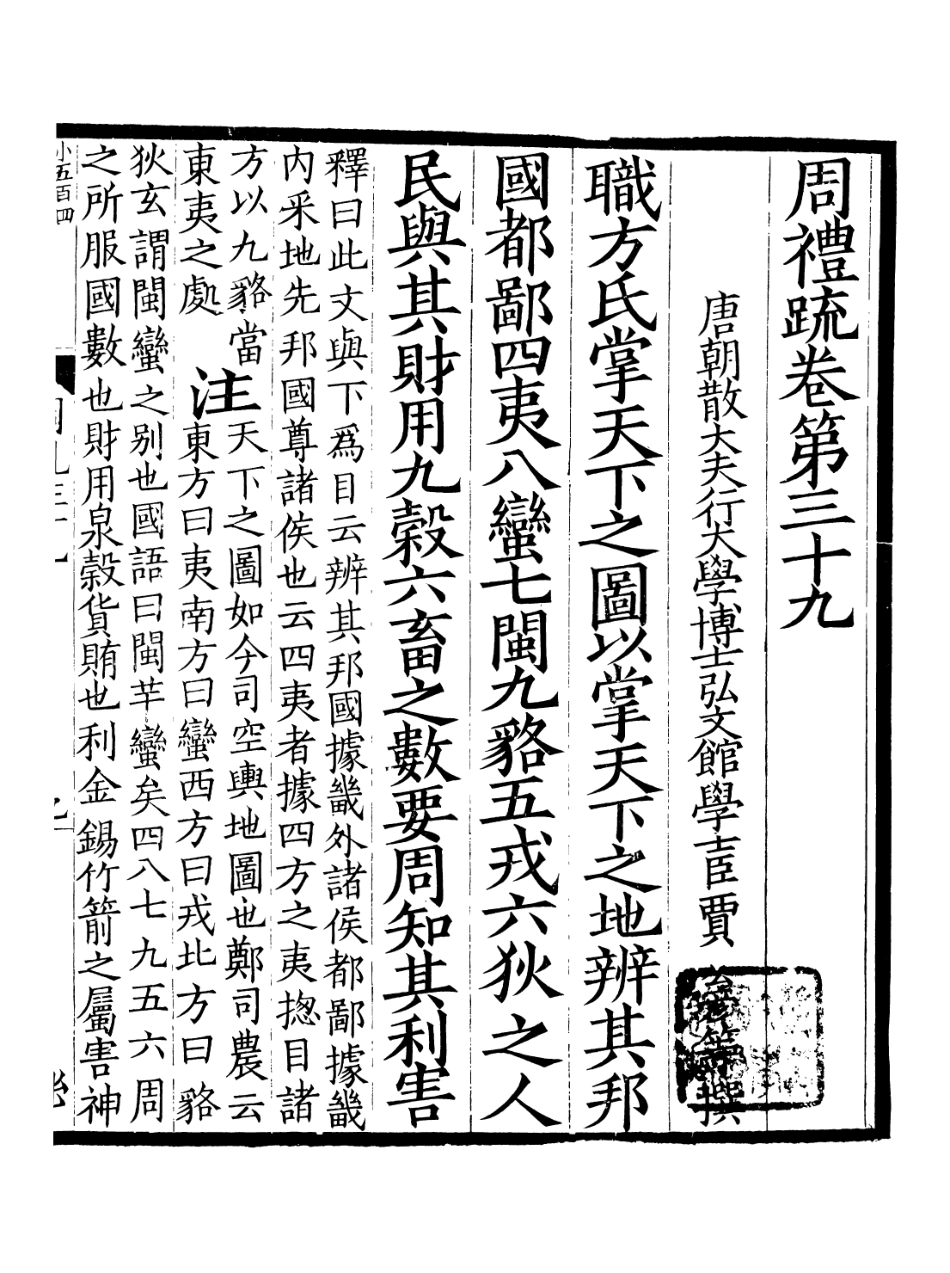 周禮疏卷第三十九
唐朝散大夫行大學博士弘文館學士臣賈公彥等撰
職方氏掌天下之圖以掌天下之地辨其邦
國都鄙四夷八蠻七閩九貉五戎六狄之人
民與其財用九穀六畜之數要周知其利害
釋曰此文與下爲目云辨其邦國據畿外諸侯都鄙據畿
內采地先邦國尊諸侯也云四夷者據四方之夷揔目諸
方以九貉當
東夷之處
注
天下之圖如今司空輿地圖也鄭司農云
東方曰夷南方曰蠻西方曰戎北方曰貉
狄玄謂閩蠻之别也國語曰閩芈蠻矣四八七九五六周
之所服國數也財用泉穀貨賄也利金錫竹箭之屬害神
小五百四